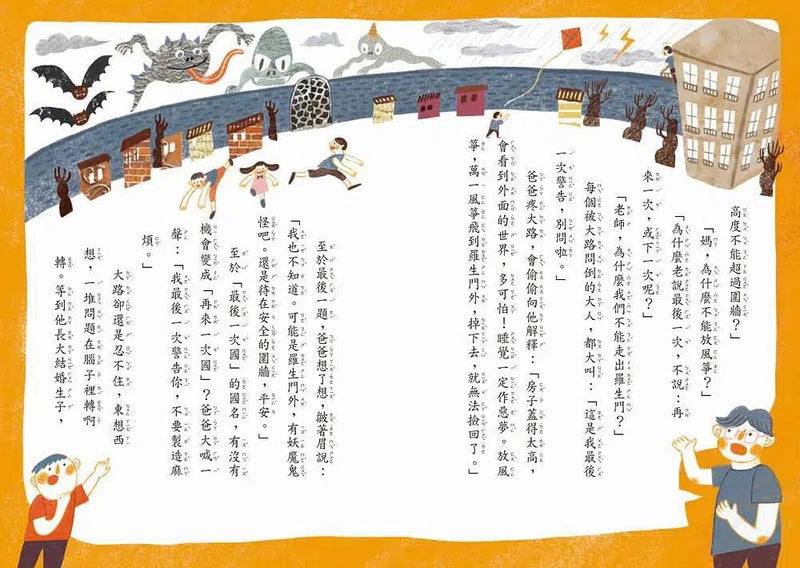 高度不能超過圍牆？」
「媽，為什麼不能放風箏？」
「為什麼老說最後一次，不說：再
來一次，或下一次呢？」
「老師，為什麼我們不能走出羅生門？」
每個被大路問倒的大人，都大叫：「這是我最後
一次警告，別問啦。」
爸爸疼大路，會偷偷向他解釋：「房子蓋得太高，
會看到外面的世界，多可怕！睡覺一定作惡夢。放風
箏，萬一風箏飛到羅生門外，掉下去，就無法撿回了。」
至於最後一題，爸爸想了想，皺著眉說：
「我也不知道。可能是羅生門外，有妖魔鬼
怪吧。還是待在安全的圍牆，平安。」
至於「最後一次國」的國名，有沒有
機會變成「再來一次國」？爸爸大喊一
聲：「我最後一次警告你，不要製造麻
煩。」
大路卻還是忍不住，東想西
想，一堆問題在腦子裡轉啊
轉。等到他長大結婚生子，